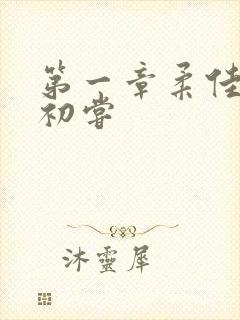 第一章柔佳
初嘗
沐靈犀